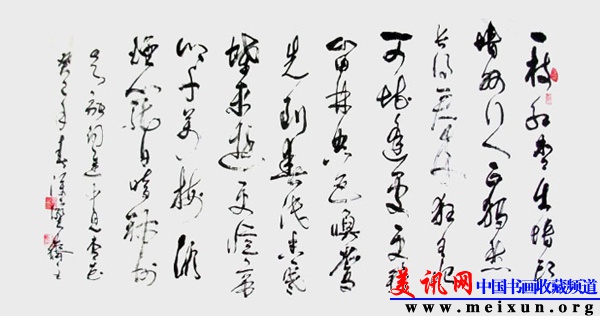 一枝红杏出墙头
墙外行人正独愁
长得看来犹有恨
可堪逢处更难
留林空色暝莺
先到春浅香寒
蝶未游更忆帝
乡千万树澹
烟笼日暗神州
吴融 途中见杏花
癸巳年春 斋主
美讯网 中国书画收藏频道
www.meixun.org